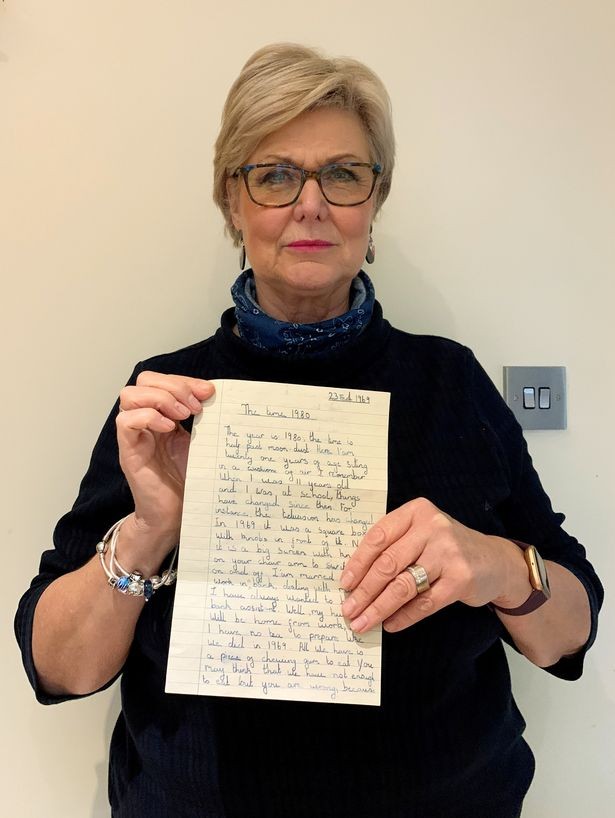 23rd 1969
The time 1980
The year is 1980. the time is
half past moon-dust. Here I'am
twenty one years of age siting
in a cushione of air. I remember
When I was 11 years old
and I was, at school, things
have changed since then. For
instance the television has changed
In 1969 it was a square box
with knobs in front of it. N
it is a big screen with
on your chair arm to
on and off. I am married
work in bank, dealing with
I have always wanted to b
bank assistent. Well, my hu
will be home from work,
I have no tea to prepare like
we did in 1969. All we have is
a piece of chewing gum to eat. You
may think that we have not enough
to eat but you are wrong, because